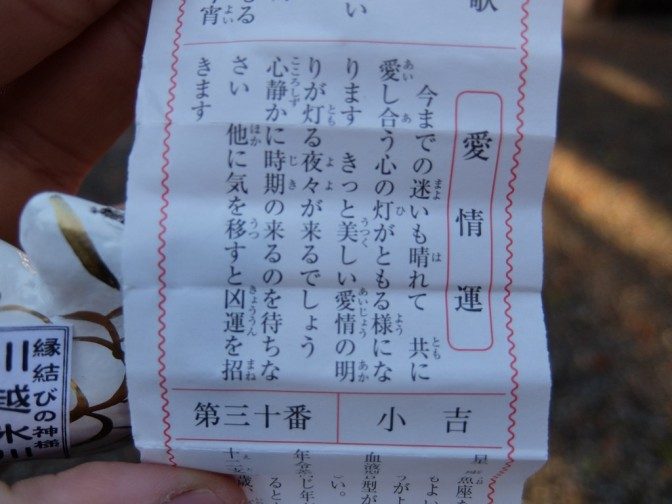 歌
い
る
今宵
愛情運
今までの迷いも晴れて　共に
愛し合う心の灯がともる様にな
ります　きっと美しい愛情の明
りが灯る夜々が来るでしょう
心静かに時期の来るのを待ちな
さい　他に気を移すと凶運を招
きます
小吉
第三十番
魚座
血液型が
縁結びの神様
川越氷川